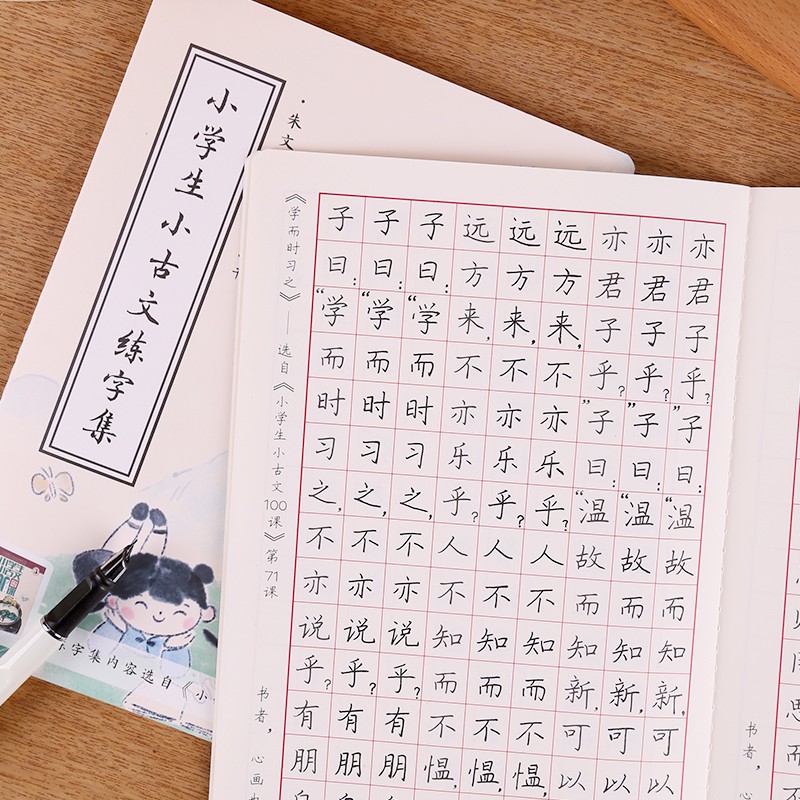 小学生小古文练字集
·朱文
字集内容选自《小
《学而时习之》——选自《小学生小古文100课》第71课
书者，心画也
子曰：“学而时习之，不亦说乎？有朋自
子曰：“学而时习之，不亦说乎？有朋自
子曰：“学而时习之，不亦说乎？有朋自
远方来，不亦乐乎？人不知而不愠，
远方来，不亦乐乎？人不知而不愠，
远方来，不亦乐乎？人不知而不愠，
亦君子乎？”子曰：“温故而知新，可以
亦君子乎？”子曰：“温故而知新，可以
亦君子乎？”子曰：“温故而知新，可以
书者，
思而不